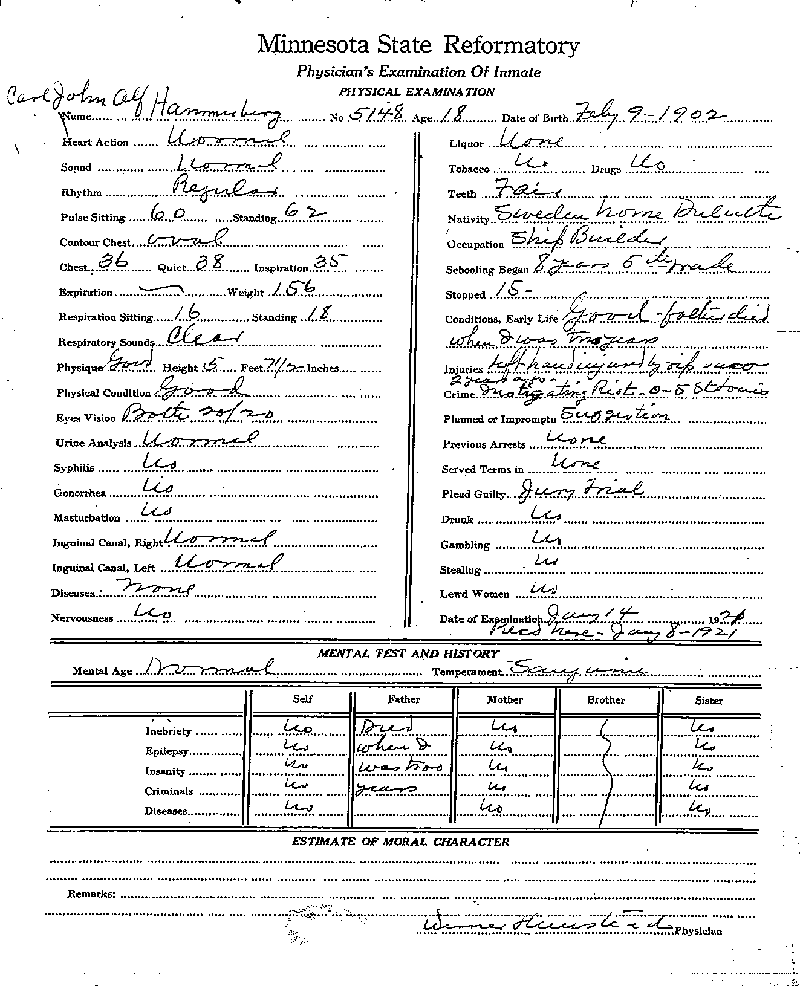 Minnesota State Reformatory
Physician's Examination Of Inmate
PHYSICAL EXAMINATION
Name Carl John Alf Hammerberg No 5148 Age 18 Date of Birth Feby 9-1902
Heart Action Normal
Sound Normal
Rhythm Regular
Pulse Sitting 60 Standing 62
Contour Chest oval
Chest 36 Quiet 38 Inspiration 35
Expiration Weight 156
Respiration Sitting 16 Standing 18
Respiratory Sounds Clear
Physique Good Height 5 Feet 7 1/2 Inches
Physical Condition Good
Eyes Vision Both 20/20
Urine Analysis Normal
Syphilis No
Gonorrhea No
Masturbation No
Inguinal Canal, Right Normal
Inguinal Canal, Left Normal
Diseases None
Nervousness No
Liquor None
Tobacco No Drugs No
Teeth Fair
Nativity Sweden home Duluth
Occupation Ship Builder
Schooling Began 8 years 5th grade
Stopped 15-
Conditions, Early Life Good - father died
when I was two years
Injuries left hand injured by rip saw
2 years ago-
Crime Instigating Riot - 0-5 St Louis
Planned or Impromptu Suggestion
Previous Arrests None
Served Terms in None
Plead Guilty Jury Trial
Drunk No
Gambling No
Stealing No
Lewd Women No
Date of Examination Jany 14 1921
Recd here - Jany 8-1921
MENTAL TEST AND HISTORY
Mental Age Normal Temperament Sanguine
Self Father Mother Brother Sister
Inebriety No Died No No
Epilepsy No when I No No
Insanity No was two No No
Criminals No years No No
Diseases No No No
ESTIMATE OF MORAL CHARACTER
Remarks:
Physician